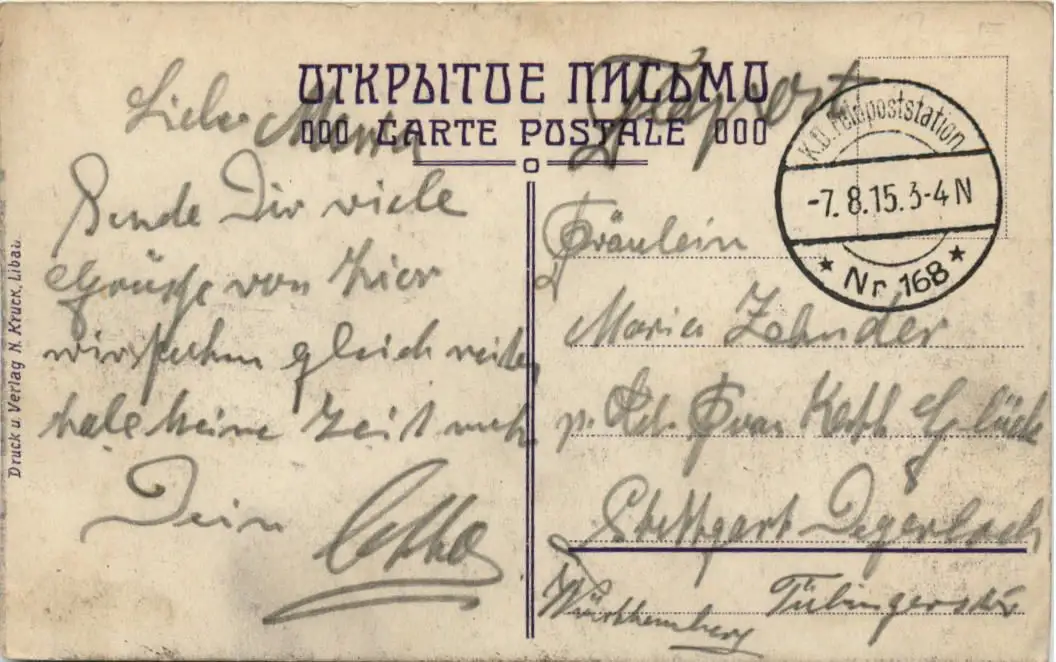 ОТКРЫТОЕ ПИСЬМО
000 CARTE POSTALE 000
Feldpost
K.D. Feldpoststation
-7.8.15.3-4 N
* Nr. 168 *
Liebe
Sende Dir viele
Grüsse von hier
wir gleich weiter
habe keine Zeit mehr
Dein Otto
Fräulein
Maria Zehnder
p. Adr. Frau Kath. Glück
Stuttgart Degerloch
Württemberg Tübingerstr
Druck u. Verlag N. Kruck, Libau.